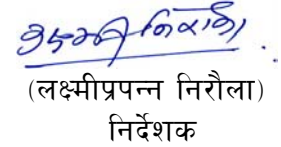 (लक्ष्मीप्रपन्न निरौला)
निर्देशक